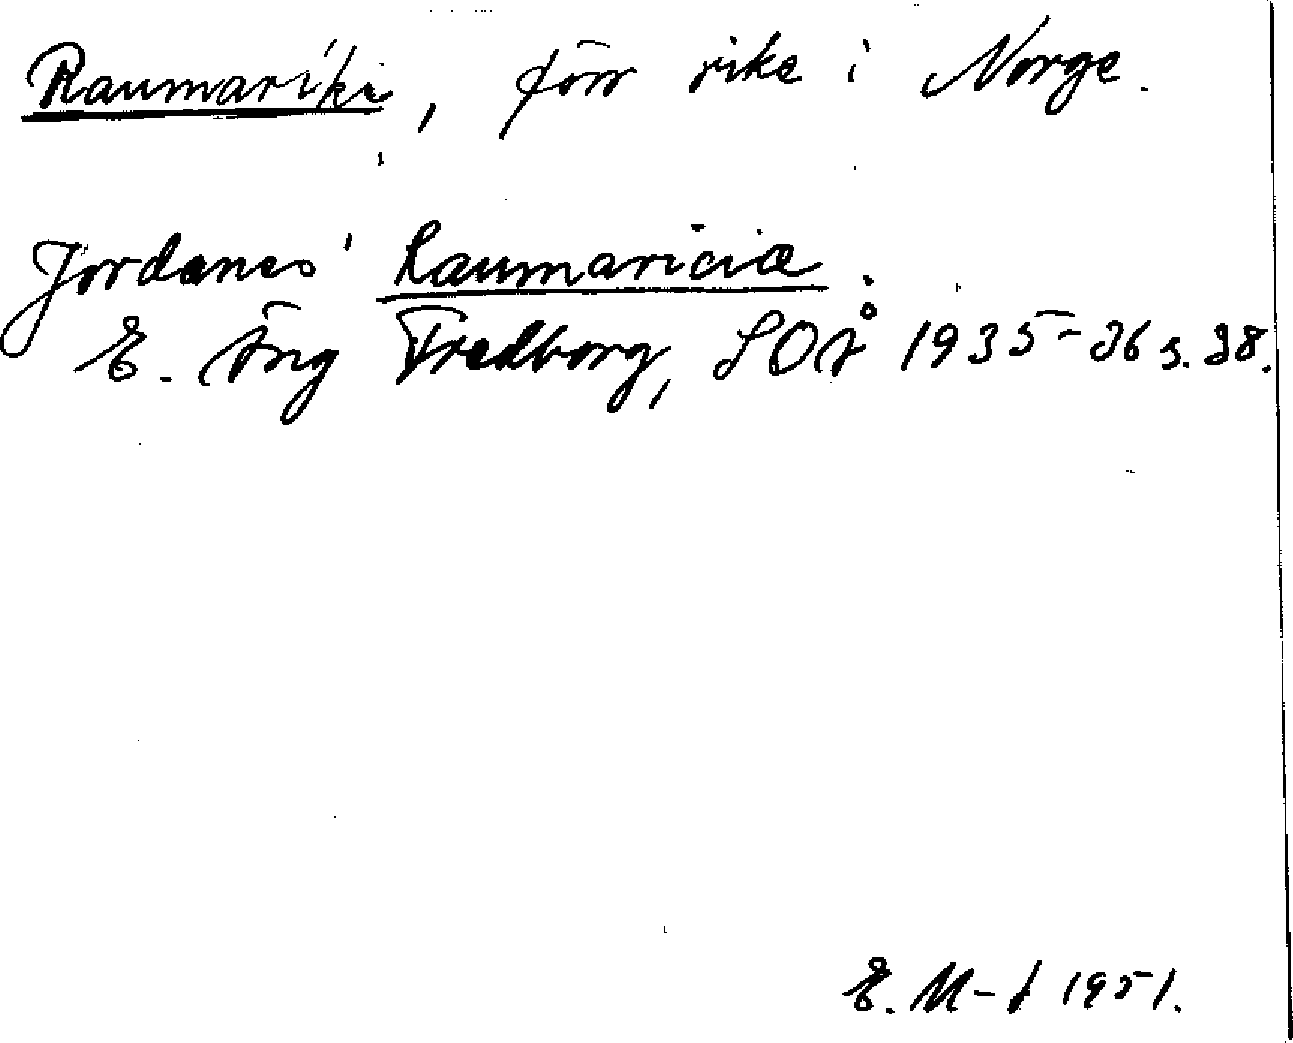 Raumaríki, förr rike i Norge.
Jordanes' Raumaricia.
E. Äng Fredborg, SOÅ 1935-36 s. 38.
E. M-t 1951.